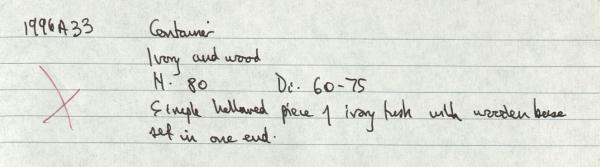 1996A33 Container
Ivory and wood
H. 80 Di. 60-75
Simple hollowed piece of ivory tusk with wooden base
set in one end.